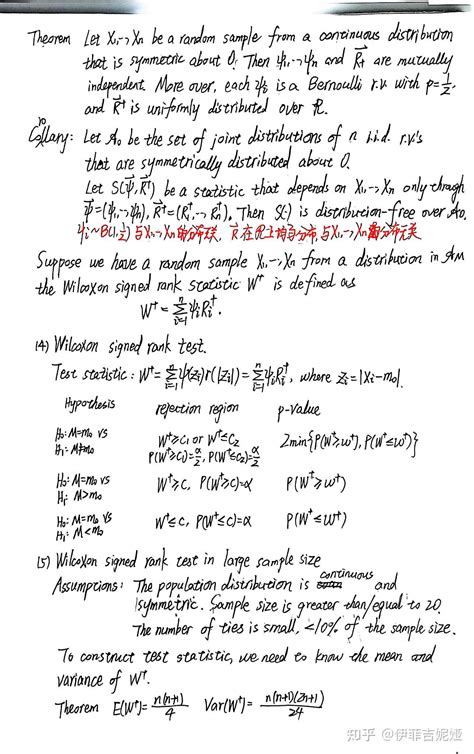 Theorem Let X₁,…,Xₙ be a random sample from a continuous distribution
that is symmetric about 0. Then ψ₁,…,ψₙ and R⃗⁺ are mutually
independent. More over, each ψᵢ is a Bernoulli r.v. with p=1/2,
and R⃗⁺ is uniformly distributed over R.
Corollary: Let A₀ be the set of joint distributions of n i.i.d. r.v.'s
that are symmetrically distributed about 0.
Let S(ψ⃗,R⃗⁺) be a statistic that depends on X₁,…,Xₙ only through
ψ⃗=(ψ₁,…,ψₙ), R⃗⁺=(R₁⁺,…,Rₙ⁺). Then S(·) is distribution-free over A₀.
ψᵢ~B(1,1/2) 与X₁,…,Xₙ的分布无关, R⃗在R上均匀分布,与X₁,…,Xₙ的分布无关
Suppose we have a random sample X₁,…,Xₙ from a distribution in Aᴍ
the Wilcoxon signed rank statistic W⁺ is defined as
W⁺=Σᵢ₌₁ⁿψᵢRᵢ⁺.
(4) Wilcoxon signed rank test.
Test statistic: W⁺=Σᵢ₌₁ⁿψ(zᵢ)r(|zᵢ|)=Σᵢ₌₁ⁿψᵢRᵢ⁺, where zᵢ=|Xᵢ-m₀|.
Hypothesis rejection region p-value
H₀: M=m₀ vs W⁺≥C₁ or W⁺≤C₂ 2min{P(W⁺≥w⁺), P(W⁺≤w⁺)}
H₁: M≠m₀ P(W⁺≥C₁)=α/2, P(W⁺≤C₂)=α/2
H₀: M=m₀ vs W⁺≥C, P(W⁺≥C)=α P(W⁺≥w⁺)
H₁: M>m₀
H₀: M=m₀ vs W⁺≤C, P(W⁺≤C)=α P(W⁺≤w⁺)
H₁: M<m₀
(5) Wilcoxon signed rank test in large sample size
Assumptions: The population distribution is continuous and
symmetric. Sample size is greater than/equal to 20.
The number of ties is small, <10% of the sample size.
To construct test statistic, we need to know the mean and
variance of W⁺.
Theorem E(W⁺)=n(n+1)/4 Var(W⁺)=n(n+1)(2n+1)/24
知乎 @伊菲吉妮娅